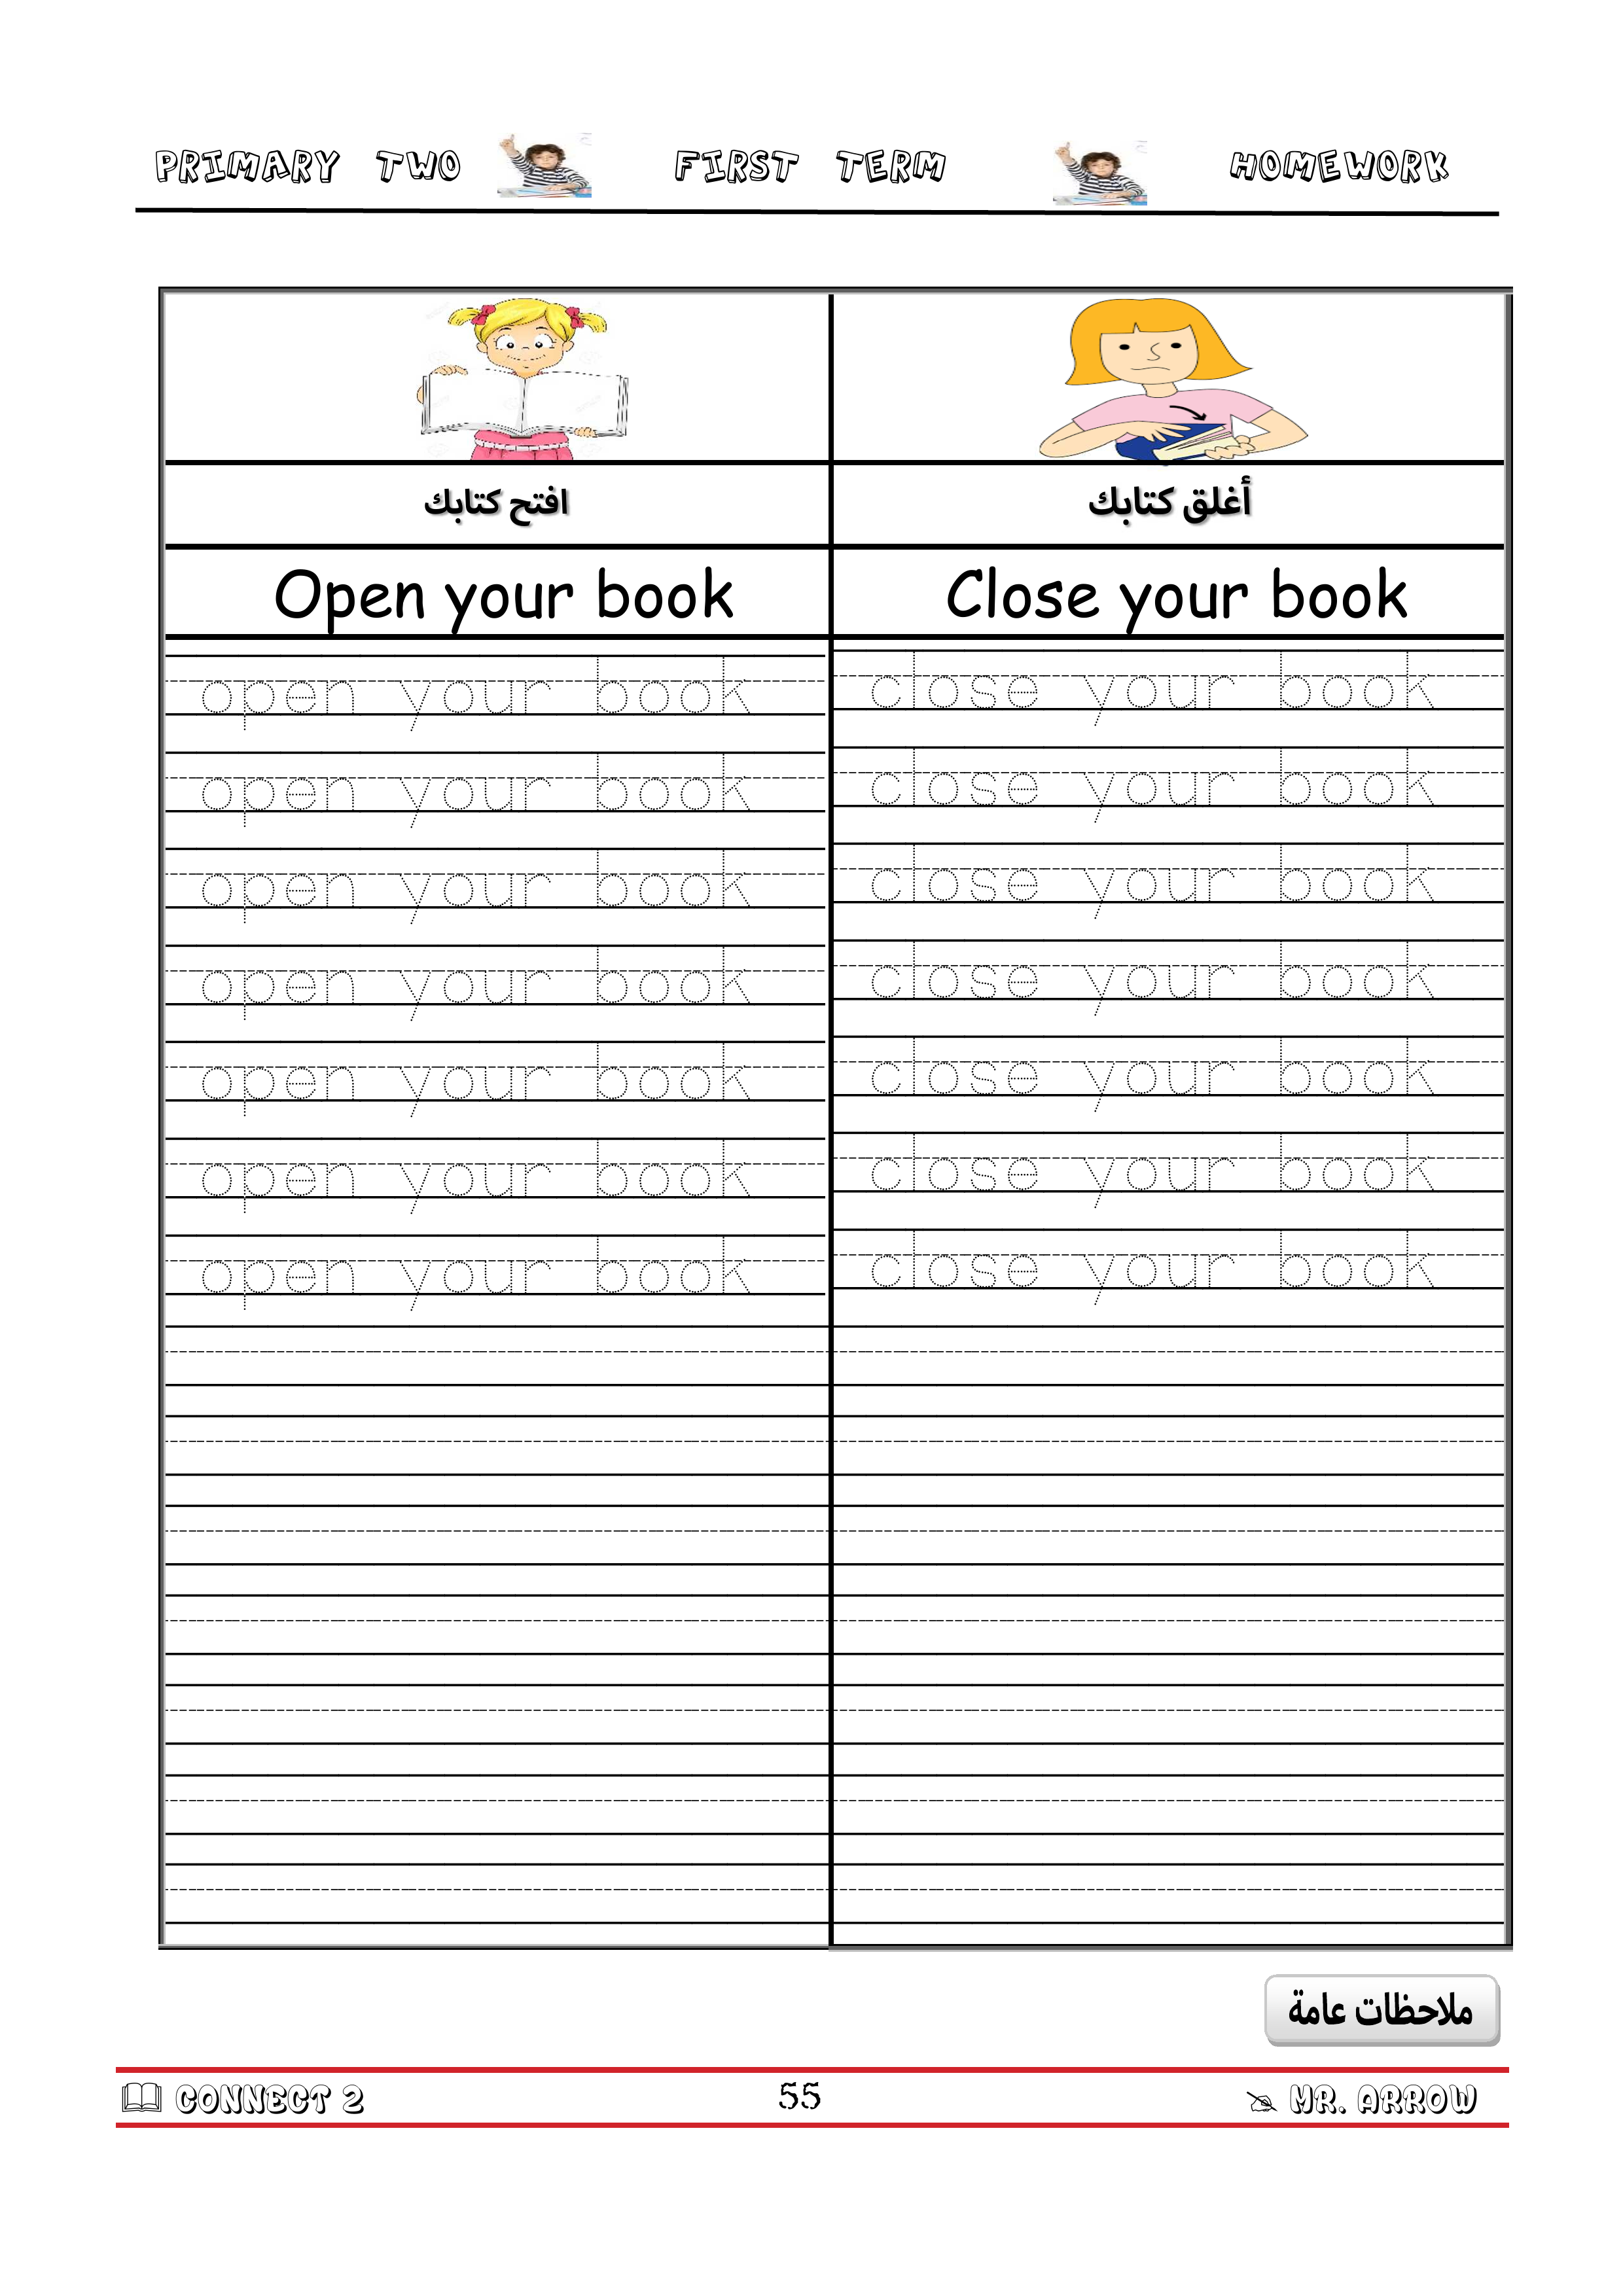 PRIMARY TWO FIRST TERM HOMEWORK
افتح كتابك أغلق كتابك
Open your book Close your book
open your book close your book
open your book close your book
open your book close your book
open your book close your book
open your book close your book
open your book close your book
open your book close your book
ملاحظات عامة
CONNECT 2 55 MR. ARROW